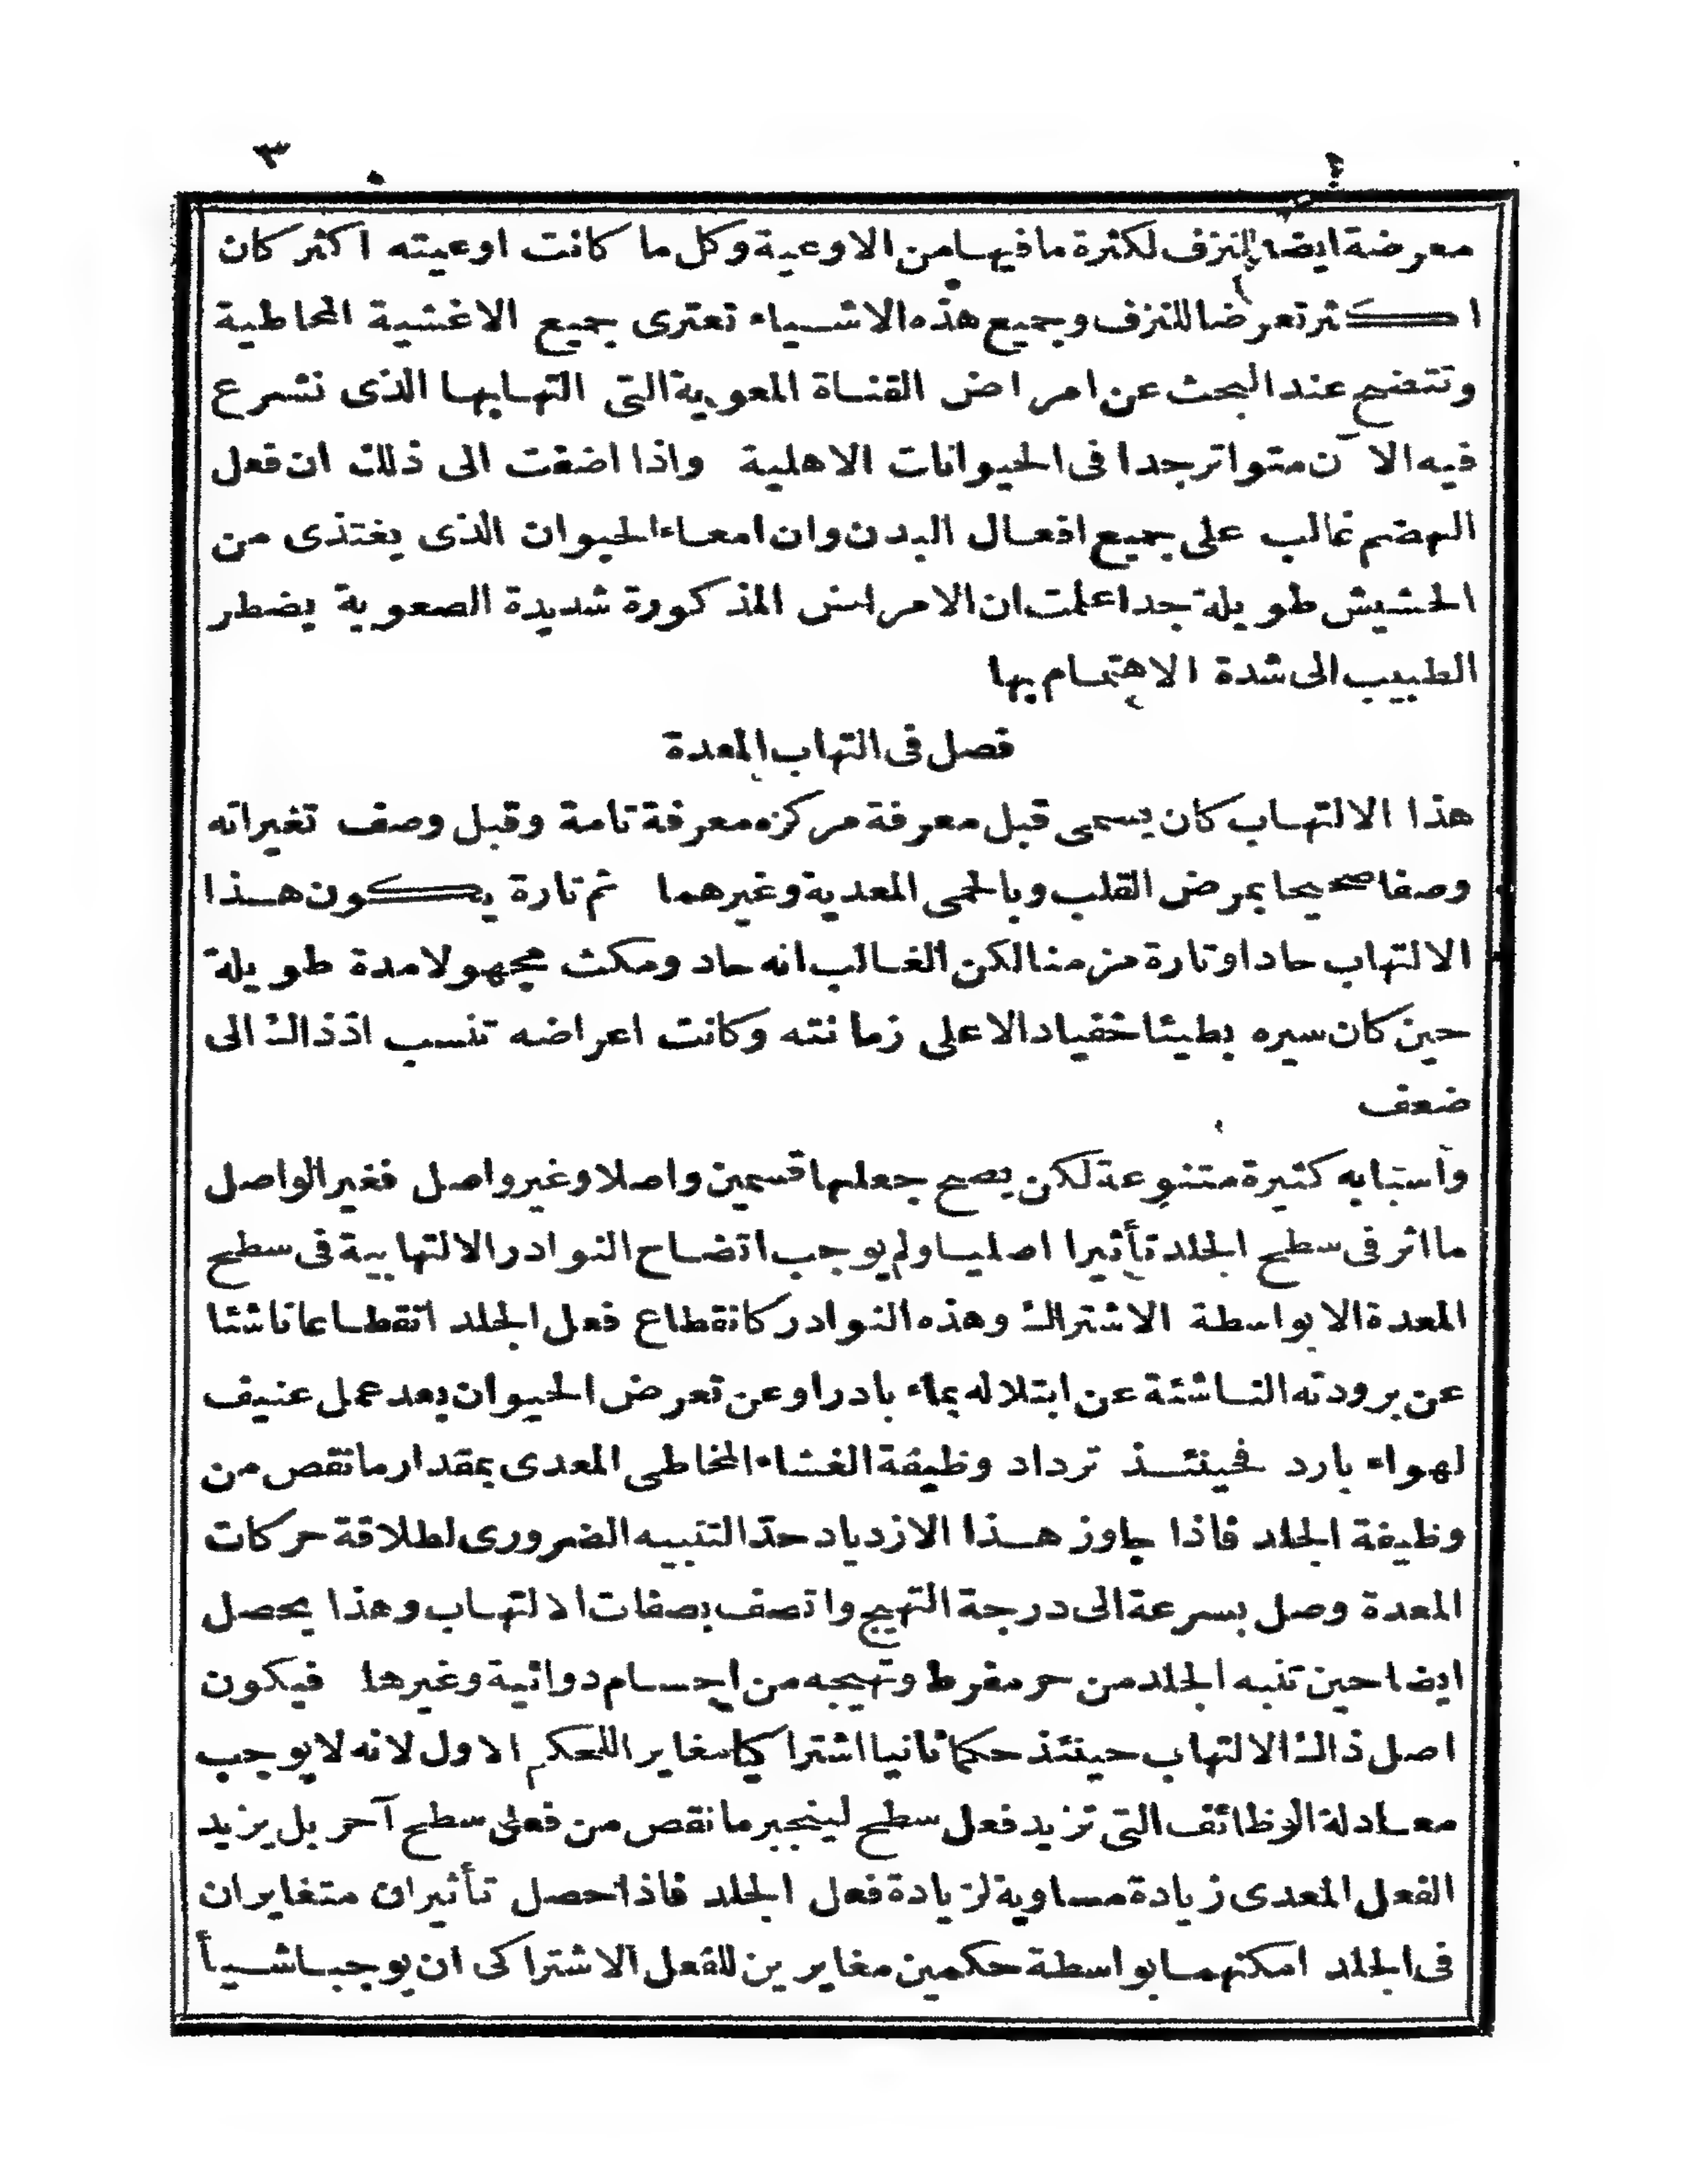 ٣
معرضة ايضا للنزف لكثرة ما فيها من الاوعية وكل ما كانت اوعيته اكثر كان
اكثر تعرضا للنزف وجميع هذه الاشياء تعترى جميع الاغشية المخاطية
وتتضح عند البحث عن امراض القناة المعوية التى التهابها الذى نشرع
فيه الآن متواتر جدا فى الحيوانات الاهلية واذا اضفت الى ذلك ان فعل
الهضم غالب على جميع افعال البدن وان امعاء الحيوان الذى يغتذى من
الحشيش طويلة جدا علمت ان الامراض المذكورة شديدة الصعوبة يضطر
الطبيب الى شدة الاهتمام بها
فصل فى التهاب المعدة
هذا الالتهاب كان يسمى قبل معرفة مركزه معرفة تامة وقبل وصف تغيراته
وصفا صحيحا بمرض القلب وبالحمى المعدية وغيرهما ثم تارة يكون هذا
الالتهاب حادا وتارة مزمنا لكن الغالب انه حاد ومكث مجهولا مدة طويلة
حين كان سيره بطيئا خفيا دالا على زمانته وكانت اعراضه تنسب اذ ذاك الى
ضعف
وأسبابه كثيرة متنوعة لكن يصح جعلها قسمين واصلا وغير واصل فغير الواصل
ما اثر فى سطح الجلد تأثيرا اصليا ولم يوجب اتضاح النوادر الالتهابية فى سطح
المعدة الا بواسطة الاشتراك وهذه النوادر كانقطاع فعل الجلد انقطاعا ناشئا
عن برودته الناشئة عن ابتلاله بماء بارد او عن تعرض الحيوان بعد عمل عنيف
لهواء بارد فحينئذ تزداد وظيفة الغشاء المخاطى المعدى بمقدار ما نقص من
وظيفة الجلد فاذا جاوز هذا الازدياد حدّ التنبيه الضرورى لطلاقة حركات
المعدة وصل بسرعة الى درجة التهيج واتصف بصفات الالتهاب وهذا يحصل
ايضا حين تنبه الجلد من حر مفرط وتهيجه من اجسام دوائية وغيرها فيكون
اصل ذاك الالتهاب حينئذ حكما ثانيا اشتراكيا مغايرا للحكم الاول لانه لا يوجب
معادلة الوظائف التى تزيد فعل سطح لينجبر ما نقص من فعل سطح آخر بل يزيد
الفعل المعدى زيادة مساوية لزيادة فعل الجلد فاذا حصل تأثيران متغايران
فى الجلد امكنهما بواسطة حكمين مغايرين للفعل الاشتراكى ان يوجبا شيأ